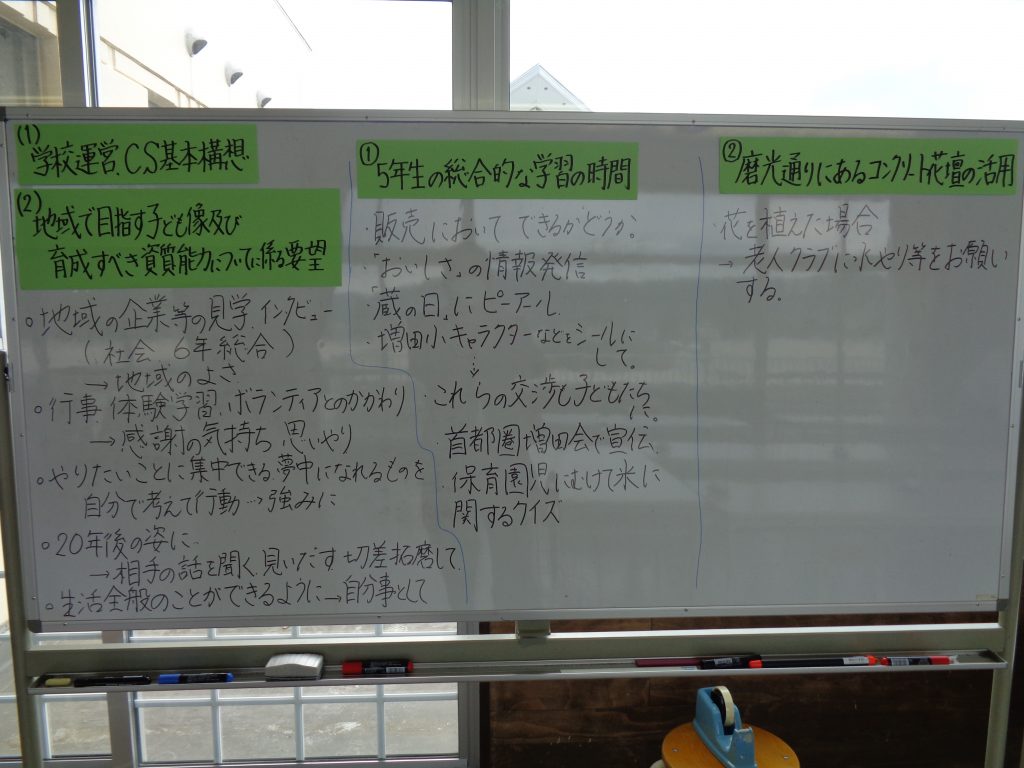 (1)
学校運営、C.S基本構想
(2)
地域で目指す子ども像及び
育成すべき資質能力についてに係る要望
○地域の企業等の見学、インタビュー
(社会、6年総合)
→地域のよさ
○行事、体験学習、ボランティアとのかかわり
→感謝の気持ち、思いやり
○やりたいことに集中できる、夢中になれるものを
自分で考えて行動…→強みに
○20年後の姿に
→相手の話を聞く、見いだす、切差拓磨して、
○生活全般のことができるように→自分事として
①
5年生の総合的な学習の時間
・販売においてできるかどうか。
・「おいしさ」の情報発信
・「蔵の日」にピーアール
・増田小キャラクターなどをシールに
して。
・これらの交渉も子どもたち
に。
・首都圏増田会で宣伝
・保育園児にむけて米に
関するクイズ
②
磨光通りにあるコンクリート花壇の活用
・花を植えた場合
→老人クラブに水やり等をお願い
する。